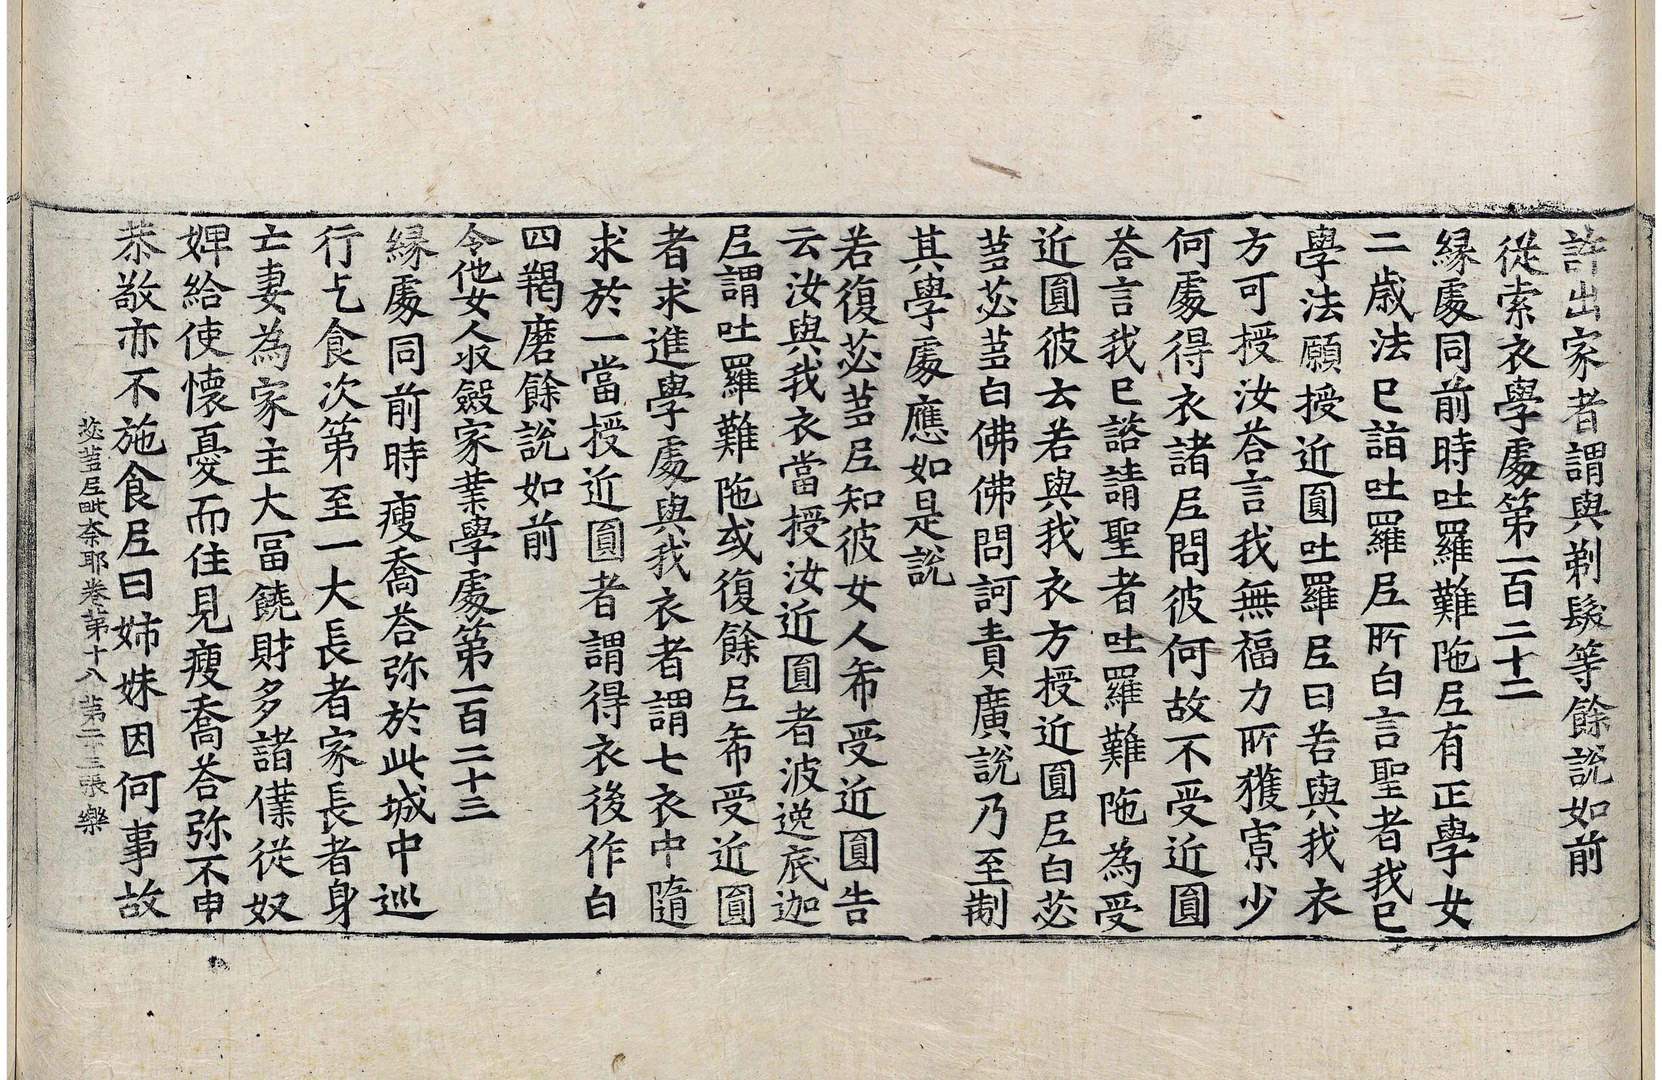 許出家者謂與剃髮等餘說如前
從索衣學處第一百二十二
緣處同前時吐羅難陁尼有正學女
二歲法已詣吐羅尼所白言聖者我已
學法願授近圓吐羅尼曰若與我衣
方可授汝荅言我無福力所獲寡少
何處得衣諸尼問彼何故不受近圓
荅言我已諮請聖者吐羅難陁為受
近圓彼云若與我衣方授近圓尼白苾
蒭苾蒭白佛佛問訶責廣說乃至制
其學處應如是說
若復苾蒭尼知彼女人希受近圓告
云汝與我衣當授汝近圓者波逸底迦
尼謂吐羅難陁或復餘尼希受近圓
者求進學處與我衣者謂七衣中隨
求於一當授近圓者謂得衣後作白
四羯磨餘說如前
令他女人收斂家業學處第一百二十三
緣處同前時瘦喬荅弥於此城中巡
行乞食次第至一大長者家長者身
亡妻為家主大冨饒財多諸僕從奴
婢給使懷憂而住見瘦喬荅弥不申
恭敬亦不施食尼曰姉妹因何事故
苾蒭尼毗奈耶卷第十八 第二十三張 樂